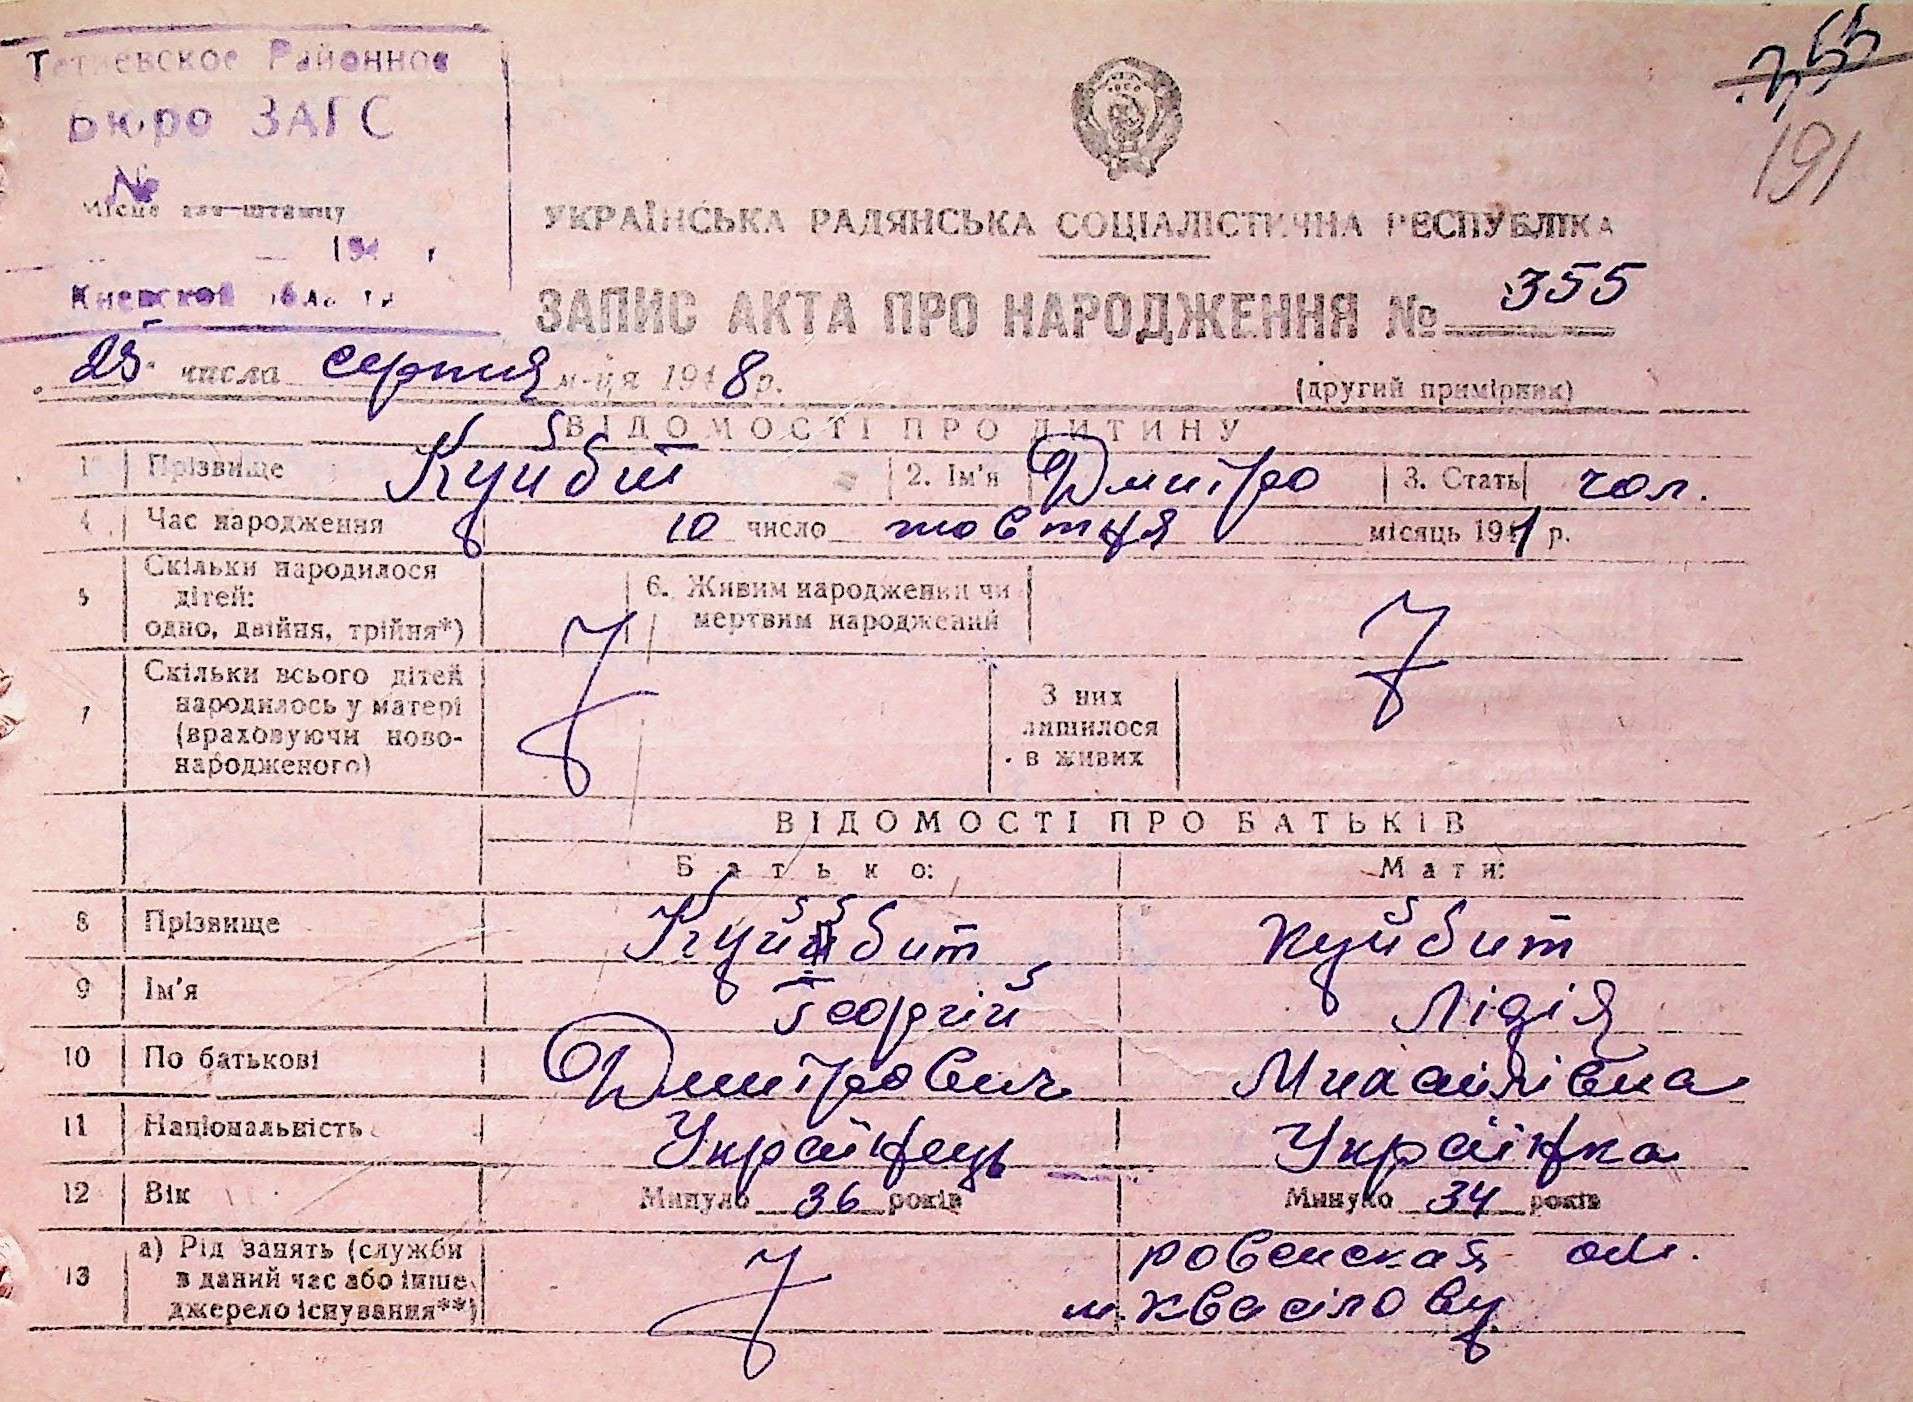 Тетиевское Районное
Бюро ЗАГС
№
Місце для штампу
194 г
Киевской области
355
191
УКРАЇНСЬКА РАДЯНСЬКА СОЦІАЛІСТИЧНА РЕСПУБЛІКА
ЗАПИС АКТА ПРО НАРОДЖЕННЯ № 355
25 числа серпня м-ця 1948 р.
(другий примірник)
ВІДОМОСТІ ПРО ДИТИНУ
1 Прізвище Куйбіт 2. Ім'я Дмитро 3. Стать чол.
4 Час народження 10 число жовтня місяць 1941 р.
5 Скільки народилося дітей: одно, двійня, трійня*)
6. Живим народжений чи мертвим народжений
7 Скільки всього дітей народилось у матері (враховуючи новонародженого)
З них лишилося в живих
ВІДОМОСТІ ПРО БАТЬКІВ
Батько: Мати:
8 Прізвище Куйбит Куйбит
9 Ім'я Георгій Лідія
10 По батькові Дмитрович Михайлівна
11 Національність Українець Українка
12 Вік Минуло 36 років Минуло 34 років
13 а) Рід занять (служби в даний час або інше джерело існування**)
ровенская обл.
м. Квасілову